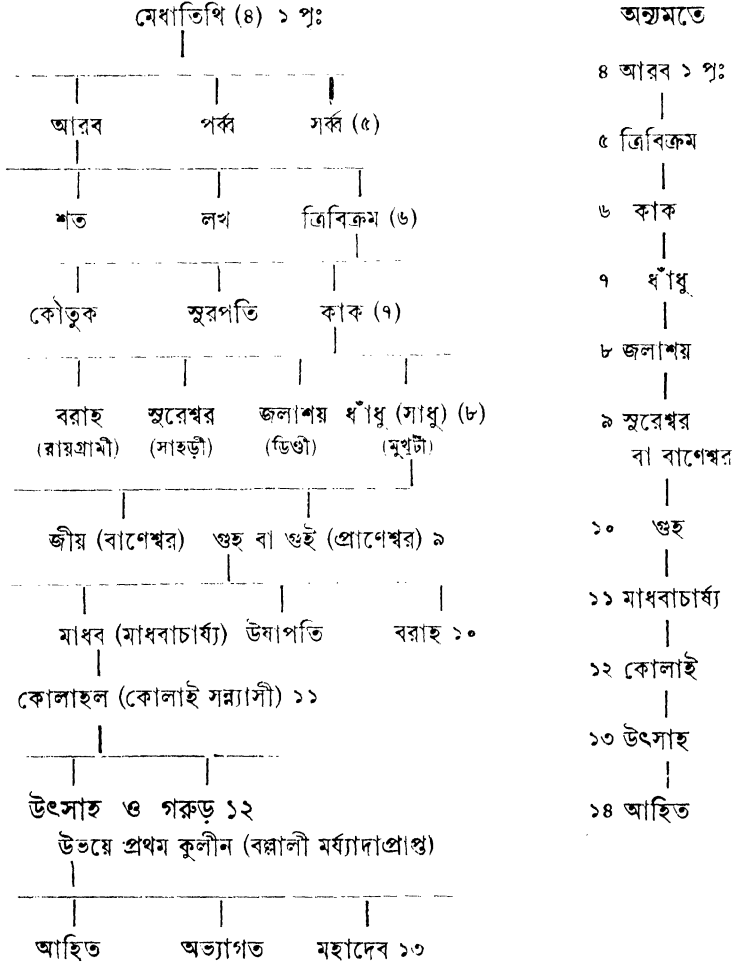 মেধাতিথি (৪) ১ পৃঃ
আরব পর্ব্ব সর্ব্ব (৫)
শত লখ ত্রিবিক্রম (৬)
কৌতুক সুরপতি কাক (৭)
বরাহ সুরেশ্বর জলাশয় ধাঁধু (সাধু) (৮)
(রায়গ্রামী) (সাহড়ী) (ডিণ্ডী) (মুখুটী)
জীয় (বাণেশ্বর) গুহ বা গুই (প্রাণেশ্বর) ৯
মাধব (মাধবাচার্য্য) উষাপতি বরাহ ১০
কোলাহল (কোলাই সন্ন্যাসী) ১১
উৎসাহ ও গরুড় ১২
উভয়ে প্রথম কুলীন (বল্লালী মর্য্যাদাপ্রাপ্ত)
আহিত অভ্যাগত মহাদেব ১৩
অন্যমতে
৪ আরব ১ পৃঃ
৫ ত্রিবিক্রম
৬ কাক
৭ ধাঁধু
৮ জলাশয়
৯ সুরেশ্বর
বা বাণেশ্বর
১০ গুহ
১১ মাধবাচার্য্য
১২ কোলাই
১৩ উৎসাহ
১৪ আহিত